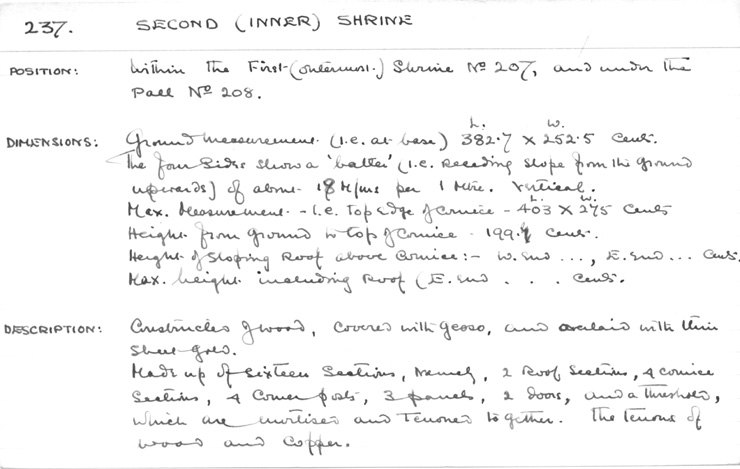 237. SECOND (INNER) SHRINE
POSITION: Within the First (outermost.) Shrine Nº 207, and under the
Pall Nº 208.
L. W.
DIMENSIONS: Ground measurement. (i.e. at base) 382.7 x 252.5 Cents.
The four sides show a 'batter' (i.e. receding slope from the ground
upwards) of about 18 M/ms per 1 Metre. Vertical.
L. W.
Max. Measurement - i.e. top edge of cornice - 403 x 275 Cents
Height from ground to top of Cornice . 199.4 Cents.
Height of Sloping Roof above Cornice :- W. End ..., E. End ... Cents.
Max. height including Roof (E. End . . . Cents.
DESCRIPTION: Constructed of wood, covered with gesso, and overlaid with thin
sheet-gold.
Made up of Sixteen Sections, namely, 2 Roof Sections, 4 cornice
Sections, 4 Corner posts, 3 panels, 2 doors, and a threshold,
which are mortised and tenoned together. The tenons of
wood and copper.